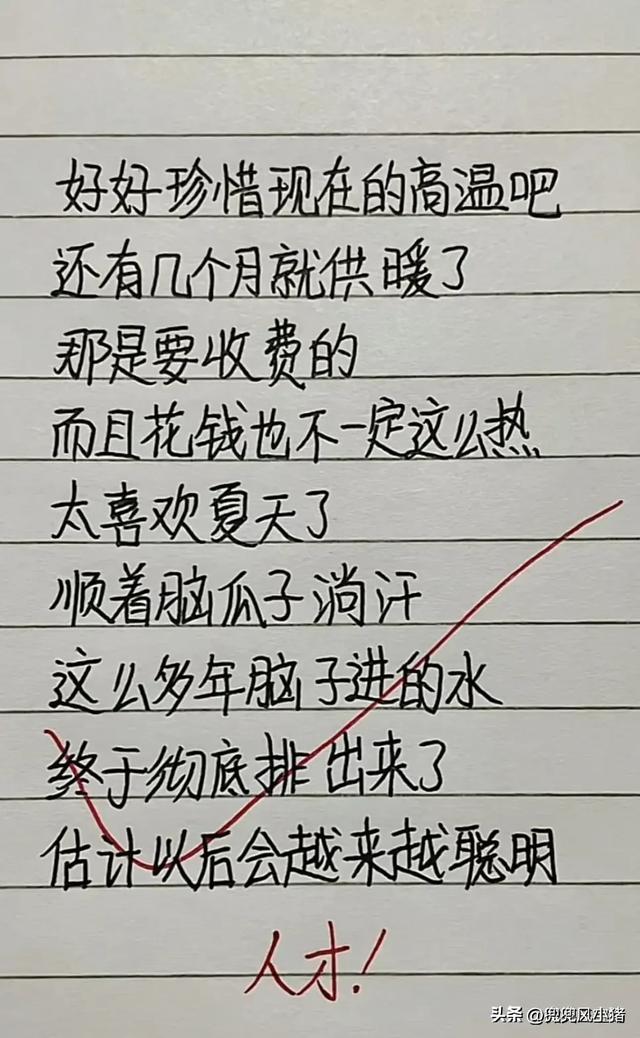 好好珍惜现在的高温吧
还有几个月就供暖了
那是要收费的
而且花钱也不一定这么热
太喜欢夏天了
顺着脑瓜子淌汗
这么多年脑子进的水
终于彻底排出来了
估计以后会越来越聪明
人才！
头条 @兜兜风小猪